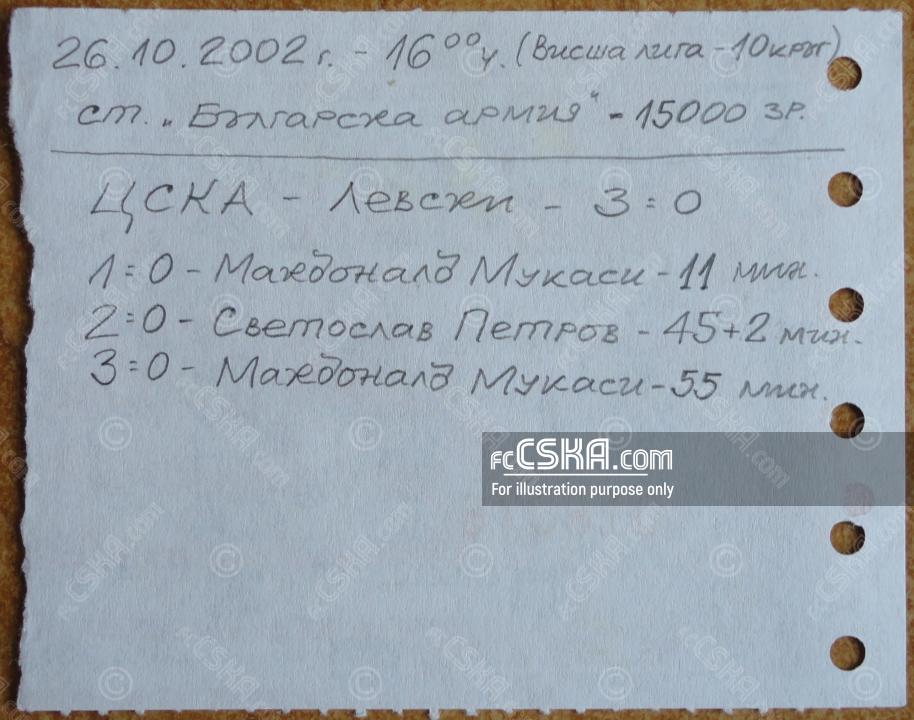 26.10.2002 г. - 16⁰⁰ ч. (Висша лига - 10 кръг)
ст. „Българска армия“ - 15000 зр.
ЦСКА - Левски - 3:0
1:0 - Макдоналд Мукаси - 11 мин.
2:0 - Светослав Петров - 45+2 мин.
3:0 - Макдоналд Мукаси - 55 мин.
fcCSKA.com
For illustration purpose only